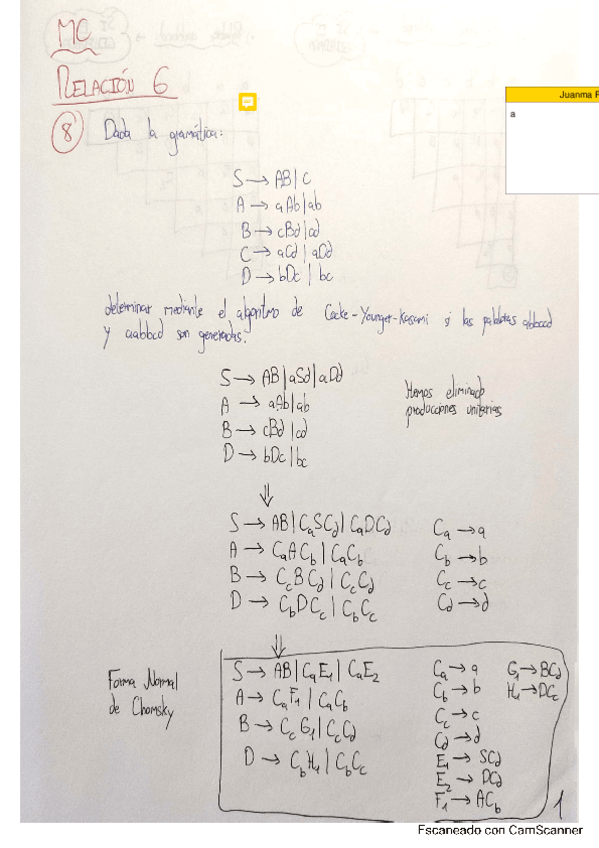 MC
RELACIÓN 6
Juanma
a
8 Dada la gramática:
S → AB | C
A → aAb | ab
B → cBd | cd
C → aCd | aDd
D → bDc | bc
determinar mediante el algoritmo de Cocke-Younger-Kasami si las palabras abbccd
y aabbcd son generadas.
S → AB | aSd | aDd
A → aAb | ab
B → cBd | cd
D → bDc | bc
Hemos eliminado
producciones unitarias
⇓
S → AB | CaSCd | CaDCd
A → CaACb | CaCb
B → CcBCd | CcCd
D → CbDCc | CbCc
Ca → a
Cb → b
Cc → c
Cd → d
⇓
Forma Normal
de Chomsky
S → AB | CaE1 | CaE2
A → CaF1 | CaCb
B → CcG1 | CcCd
D → CbH1 | CbCc
Ca → a
Cb → b
Cc → c
Cd → d
E1 → SCd
E2 → DCd
F1 → ACb
G1 → BCd
H1 → DCc
1
Escaneado con CamScanner